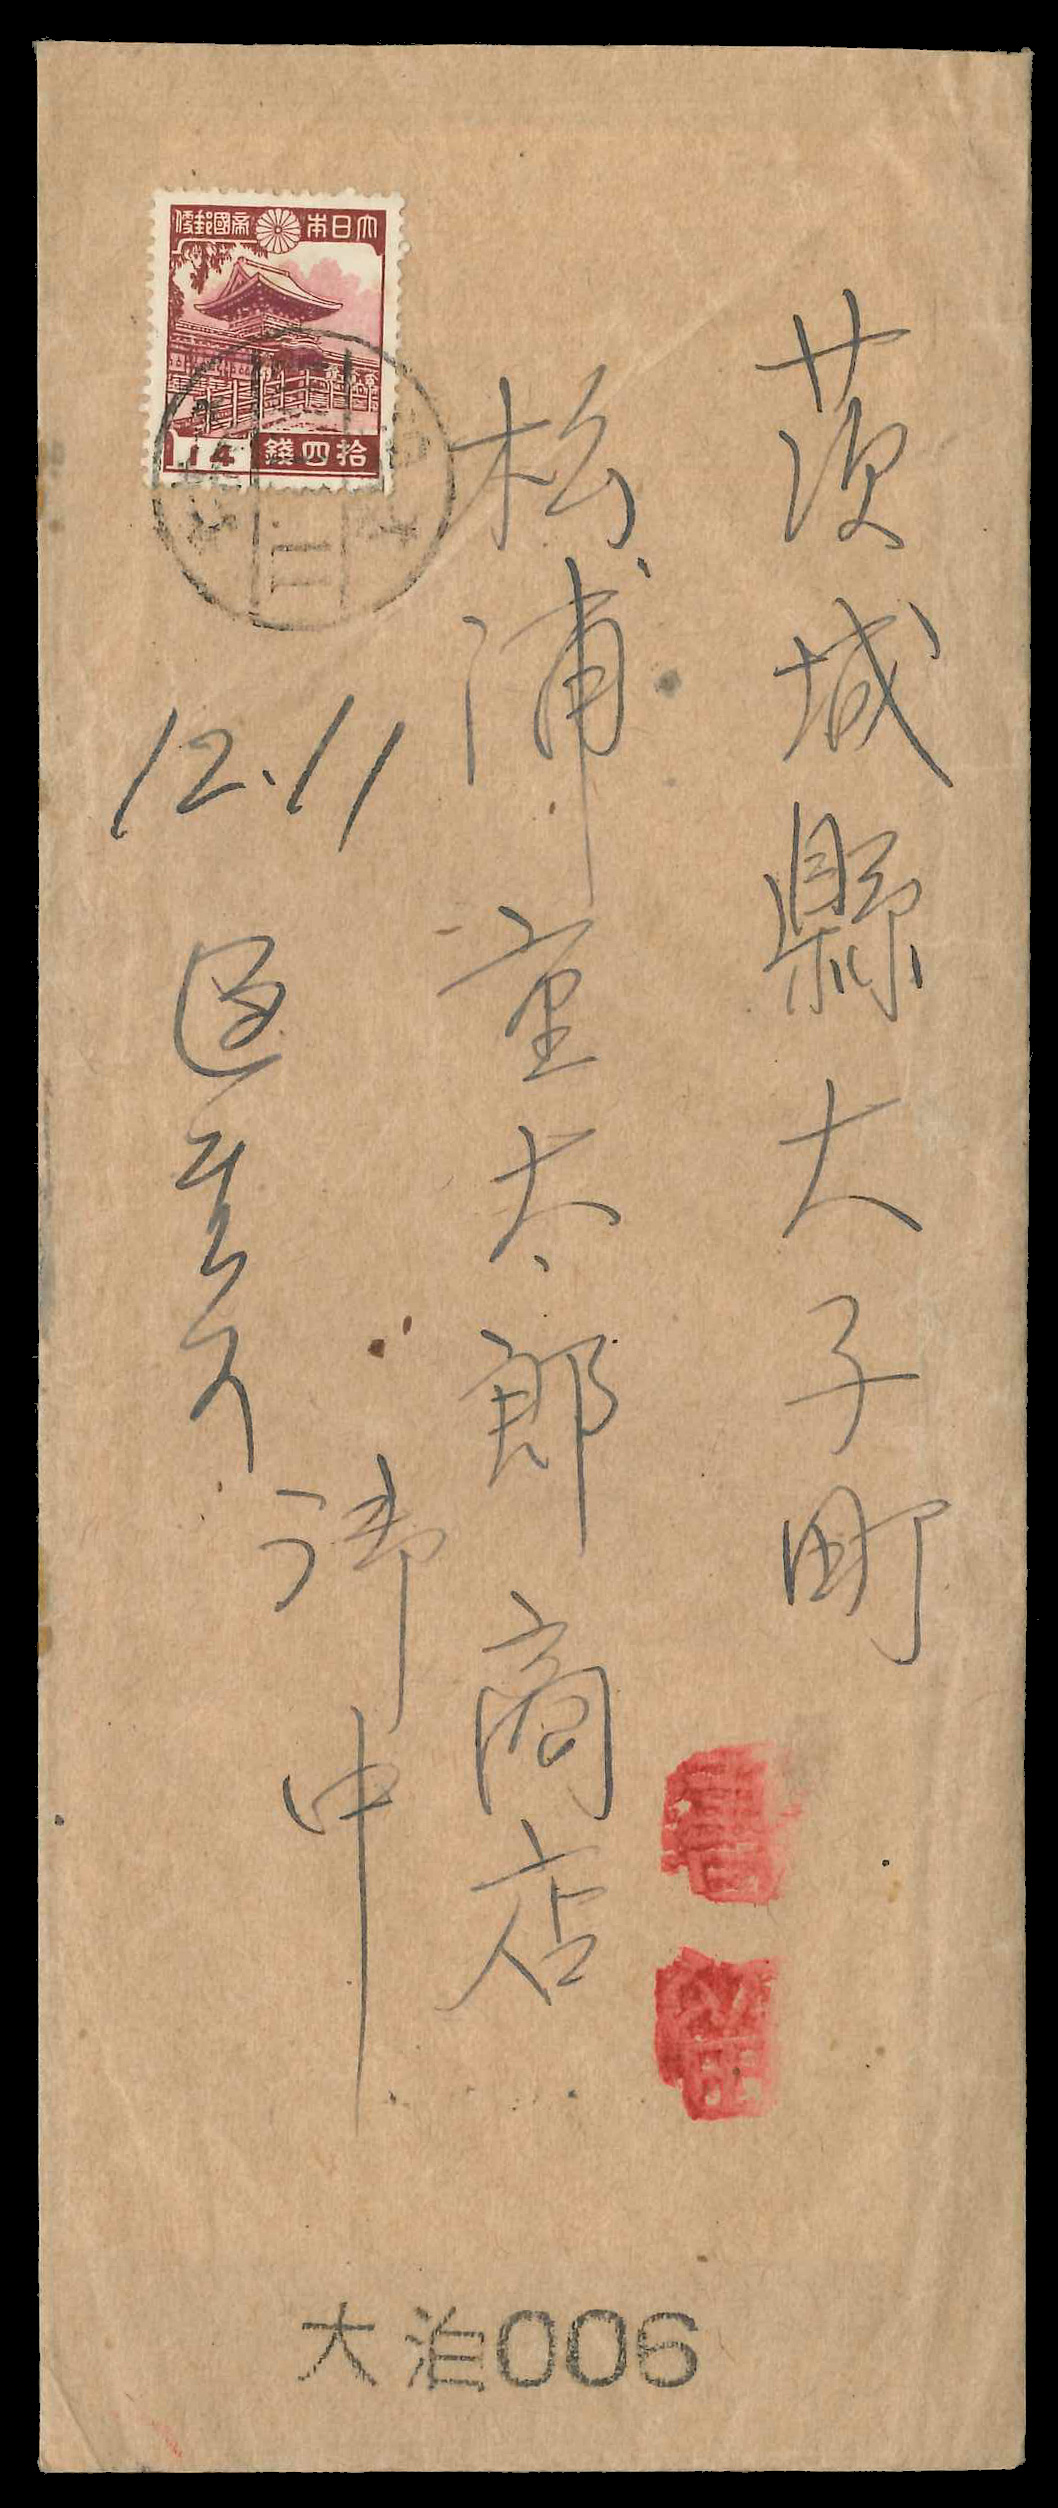 茨城縣大子町
松浦重太郎商店
御中
12.11
大日本帝國郵便
14 拾四錢
書留
大泊006